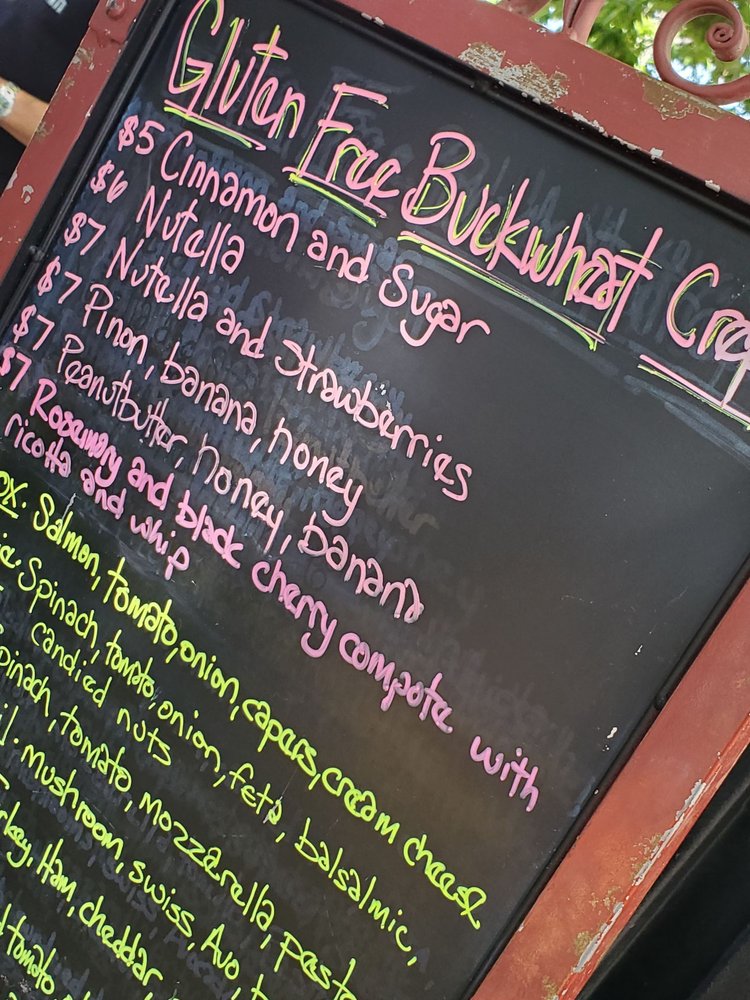 Gluten Free Buckwheat Crep
$5 Cinnamon and Sugar
$6 Nutella
$7 Nutella and Strawberries
$7 Pinon, banana, honey
$7 Peanutbutter, honey, banana
$7 Rosemary and black cherry compote with
ricotta and whip
ox. Salmon, tomato, onion, capers, cream cheese
Spinach, tomato, onion, feta, balsalmic,
candied nuts
pinach, tomato, mozzarella, pesto
mushroom, swiss, Avo,
rkey, Ham, cheddar
tomato